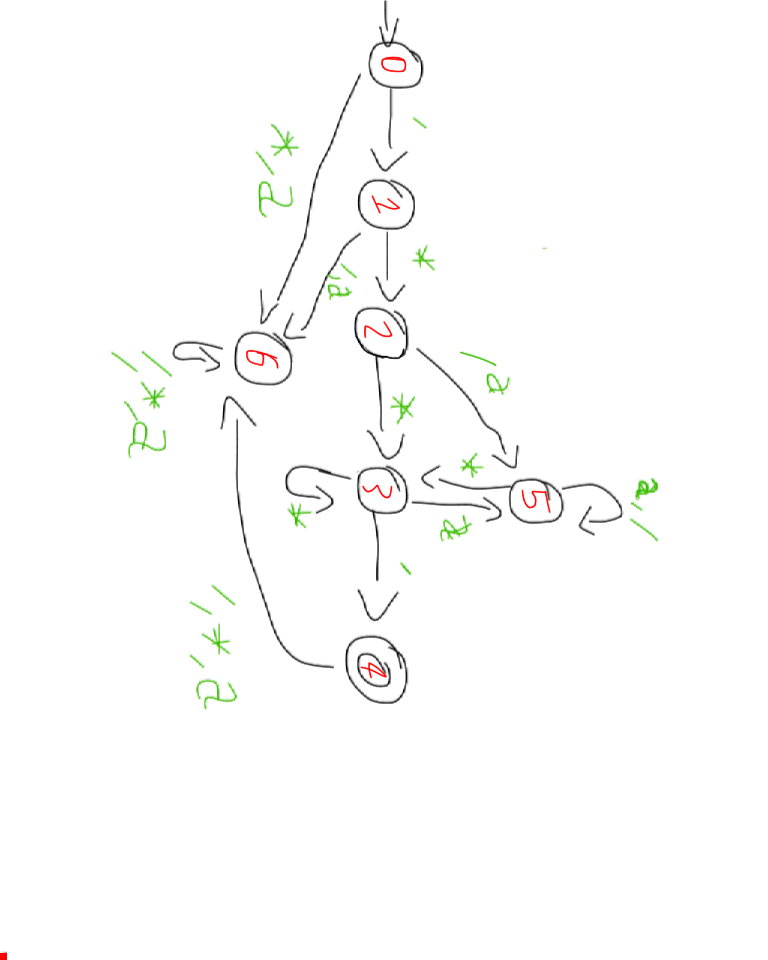 a, /
5
/ a
*
a
/
*
*
/
0
1
2
3
4
/, a
*
*, a
6
/, *, a
/, *, a